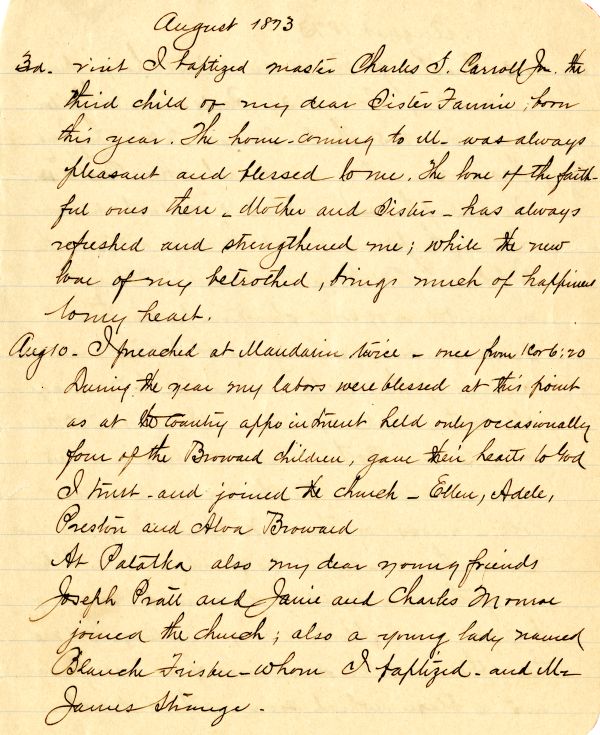 August 1873
3d. visit I baptized master Charles J. Carroll Jr. the
third child of my dear Sister Fannie; born
this year. The home-coming to M- was always
pleasant and blessed to me. The love of the faith-
ful ones there - Mother and Sisters - has always
refreshed and strengthened me; while the new
love of my betrothed, brings much of happiness
to my heart.
Aug 10 - I preached at Mandarin twice - once from 1 Cor 6:20
During the year my labors were blessed at this point
as at the Country appointment held only occasionally
four of the Broward children, gave their hearts to God
I trust - and joined the church - Ellen, Adele,
Preston and Alva Broward
At Palatka also my dear young friends
Joseph Pratt and Janie and Charles Monroe
joined the church; also a young lady named
Blanche - whom I baptized - and Mr
James Strange.